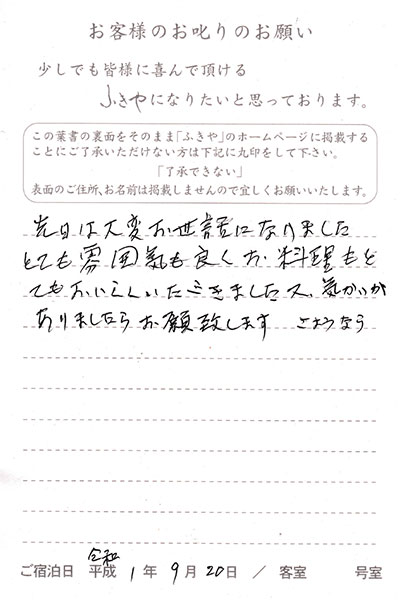 お客様のお叱りのお願い
少しでも皆様に喜んで頂ける
ふきやになりたいと思っております。
この葉書の裏面をそのまま「ふきや」のホームページに掲載する
ことにご了承いただけない方は下記に丸印をして下さい。
「了承できない」
表面のご住所、お名前は掲載しませんので宜しくお願いいたします。
先日は大変お世話になりました
とても雰囲気も良くお料理もと
てもおいしくいただきました又、気かいが
ありましたらお願致します さようなら
ご宿泊日 平成 令和 1年 9月 20日 / 客室 号室